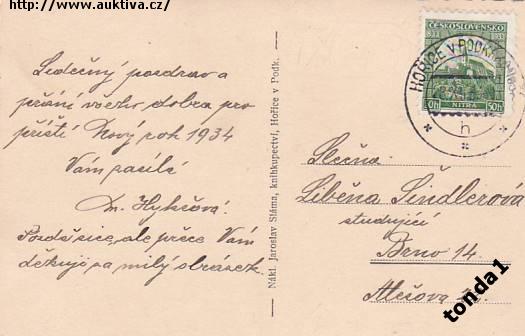 http://www.auktiva.cz/
Srdečný pozdrav a
přání všeho dobra pro
příští Nový rok 1934
Vám zasílá
Pozdě sice, ale přece Vám
děkuji za milý obrázek.
Nákl. Jaroslav Sláma, knihkupectví, Hořice v Podk.
ČESKOSLOVENSKO
833 1933
NITRA
50h 50h
HOŘICE V PODKRK
h
Slečna
Liběna Šindlerová
studující
Brno 14.
Alešova
tonda1